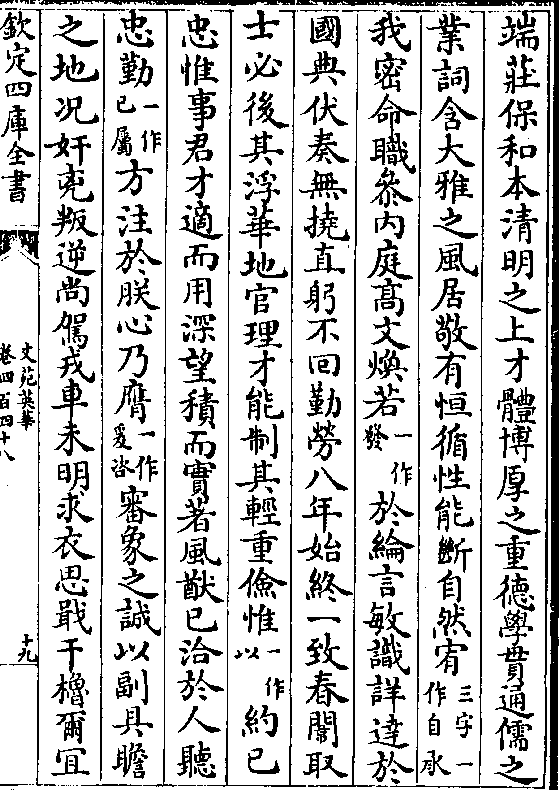 端莊保和本清明之上才體博厚之重德學貫通儒之
業詞含大雅之風居敬有恒循性能斷自然宥三字一作自承
我密命職叅内庭髙文煥若一作發於綸言敏識詳達於
國典伏奏無撓直躬不回勤勞八年始終一致春闈取
士必後其浮華地官理才能制其輕重儉惟一作以約已
忠惟事君才適而用深望積而實著風猷已洽於人聽
忠勤一作已屬方注於朕心乃膺一作爰咨審象之誠以副具瞻
之地况奸兇叛逆尚駕戎車未明求衣思戢干櫓爾宜
欽定四庫全書
文苑英華
卷四百四十八
十九